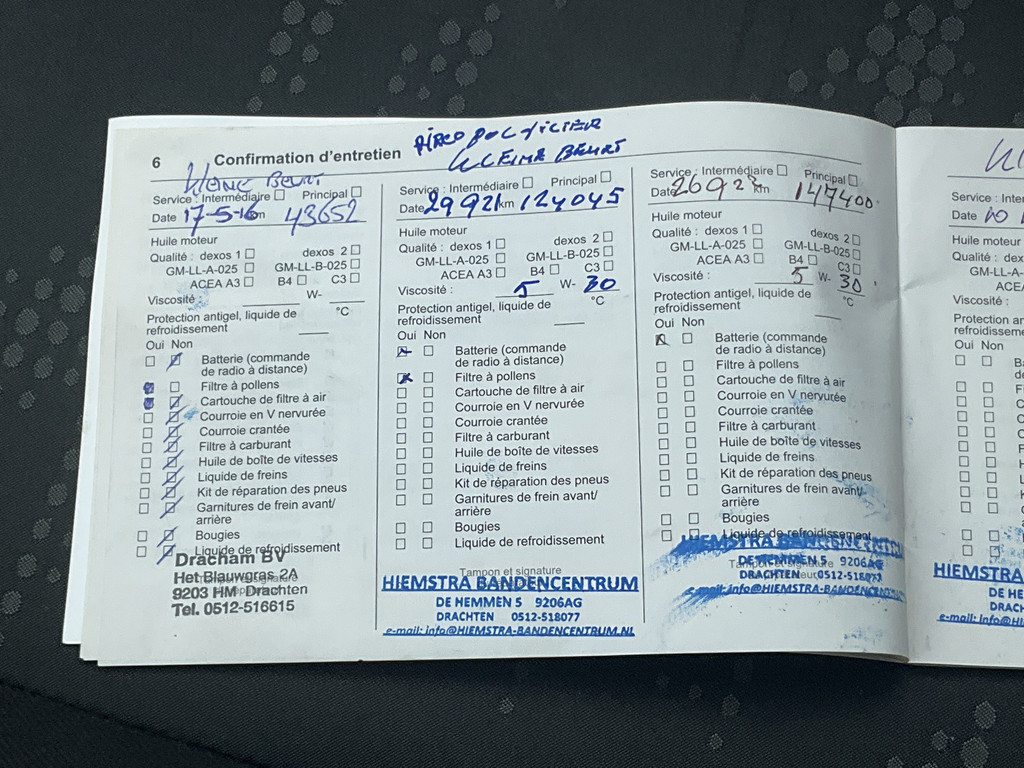 6 Confirmation d'entretien
KLEINE BEURT
Service : Intermédiaire □ Principal □
Date 17-5-16 km 43652
Huile moteur
Qualité : dexos 1 □ dexos 2 □
GM-LL-A-025 □ GM-LL-B-025 □
ACEA A3 □ B4 □ C3 □
Viscosité : W-
Protection antigel, liquide de refroidissement °C
Oui Non
Batterie (commande
de radio à distance)
Filtre à pollens
Cartouche de filtre à air
Courroie en V nervurée
Courroie crantée
Filtre à carburant
Huile de boîte de vitesses
Liquide de freins
Kit de réparation des pneus
Garnitures de frein avant/
arrière
Bougies
Liquide de refroidissement
Dracham BV
Het Blauwgras 2A
9203 HM Drachten
Tel. 0512-516615
KLEINE BEURT
Service : Intermédiaire □ Principal □
Date 29 9 21 km 124045
Huile moteur
Qualité : dexos 1 □ dexos 2 □
GM-LL-A-025 □ GM-LL-B-025 □
ACEA A3 □ B4 □ C3 □
Viscosité : 5 W- 30
Protection antigel, liquide de
refroidissement °C
Oui Non
Batterie (commande
de radio à distance)
Filtre à pollens
Cartouche de filtre à air
Courroie en V nervurée
Courroie crantée
Filtre à carburant
Huile de boîte de vitesses
Liquide de freins
Kit de réparation des pneus
Garnitures de frein avant/
arrière
Bougies
Liquide de refroidissement
Tampon et signature
HIEMSTRA BANDENCENTRUM
DE HEMMEN 5 9206AG
DRACHTEN 0512-518077
e-mail: info@HIEMSTRA-BANDENCENTRUM.NL
Service : Intermédiaire □ Principal □
Date 26 9 23 km 147400
Huile moteur
Qualité : dexos 1 □ dexos 2 □
GM-LL-A-025 □ GM-LL-B-025 □
ACEA A3 □ B4 □ C3 □
Viscosité : 5 W- 30
Protection antigel, liquide de
refroidissement °C
Oui Non
Batterie (commande
de radio à distance)
Filtre à pollens
Cartouche de filtre à air
Courroie en V nervurée
Courroie crantée
Filtre à carburant
Huile de boîte de vitesses
Liquide de freins
Kit de réparation des pneus
Garnitures de frein avant/
arrière
Bougies
Liquide de refroidissement
Tampon et signature
HIEMSTRA BANDENCENTRUM
DE HEMMEN 5 9206AG
DRACHTEN 0512-518077
e-mail: info@HIEMSTRA-BANDENCENTRUM
Service : In
Date 10
Huile moteur
Qualité : dex
GM-LL-A-
ACEA
Viscosité :
Protection ar
refroidissem
Oui Non
HIEMSTRA
DE HE
DRACH
e-mail: info@HI